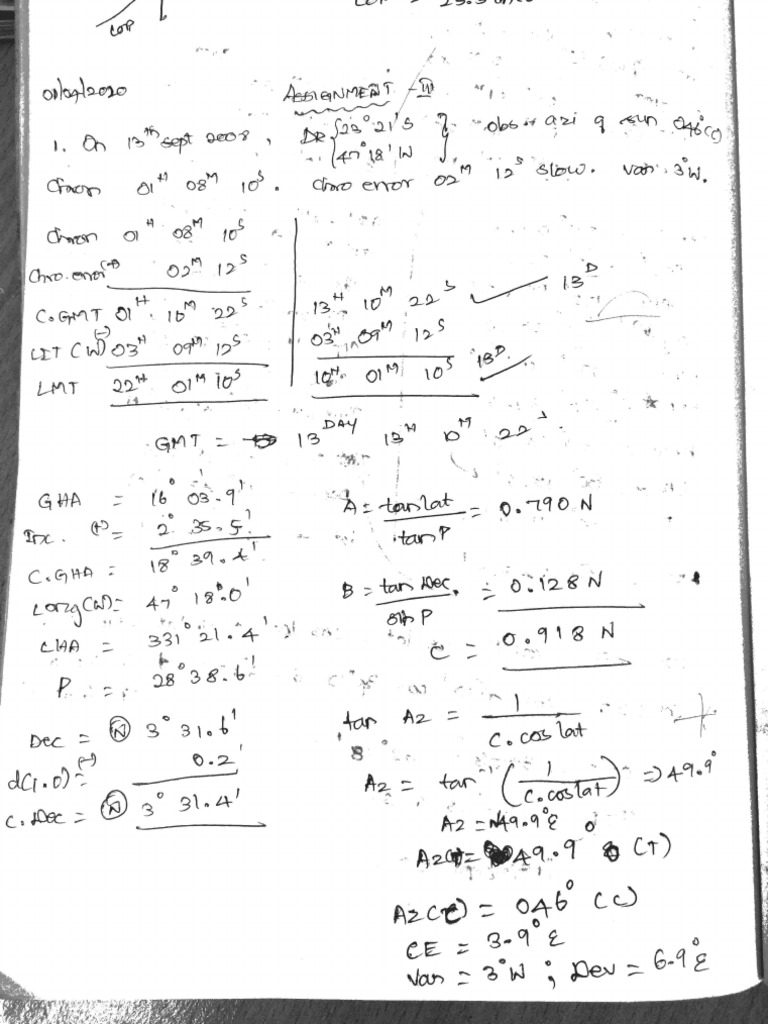 COP
01/04/2020 ASSIGNMENT - III
1. On 13th Sept 2008, DR { 23° 21' S obs. azi of sun 046°(C)
47° 18' W }
Chron 01H 08M 10S. Chro error 02M 12S slow. Var 3°W.
Chron 01H 08M 10S
Chro. error (+) 02M 12S
C.GMT 01H 10M 22S 13H 10M 22S 13D
LIT (W) (-) 03H 09M 12S 03H 09M 12S
LMT 22H 01M 10S 10H 01M 10S 13D
GMT = 13DAY 13H 10M 22S
GHA = 16° 03.9'
Inc. (+) = 2° 35.5'
C.GHA = 18° 39.4'
Long(W) = 47° 18.0'
LHA = 331° 21.4'
P = 28° 38.6'
Dec = (N) 3° 31.6'
d(1.0) = (-) 0.2'
C.Dec = (N) 3° 31.4'
A = tan lat / tan P = 0.790 N
B = tan Dec. / sin P = 0.128 N
C = 0.918 N
tan Az = 1 / C.cos lat
Az = tan⁻¹ (1 / C.cos lat) => 49.9°
Az = N49.9°E
Az(T) = 049.9° (T)
Az(C) = 046° (C)
CE = 3.9°E
Var = 3°W ; Dev = 6.9°E